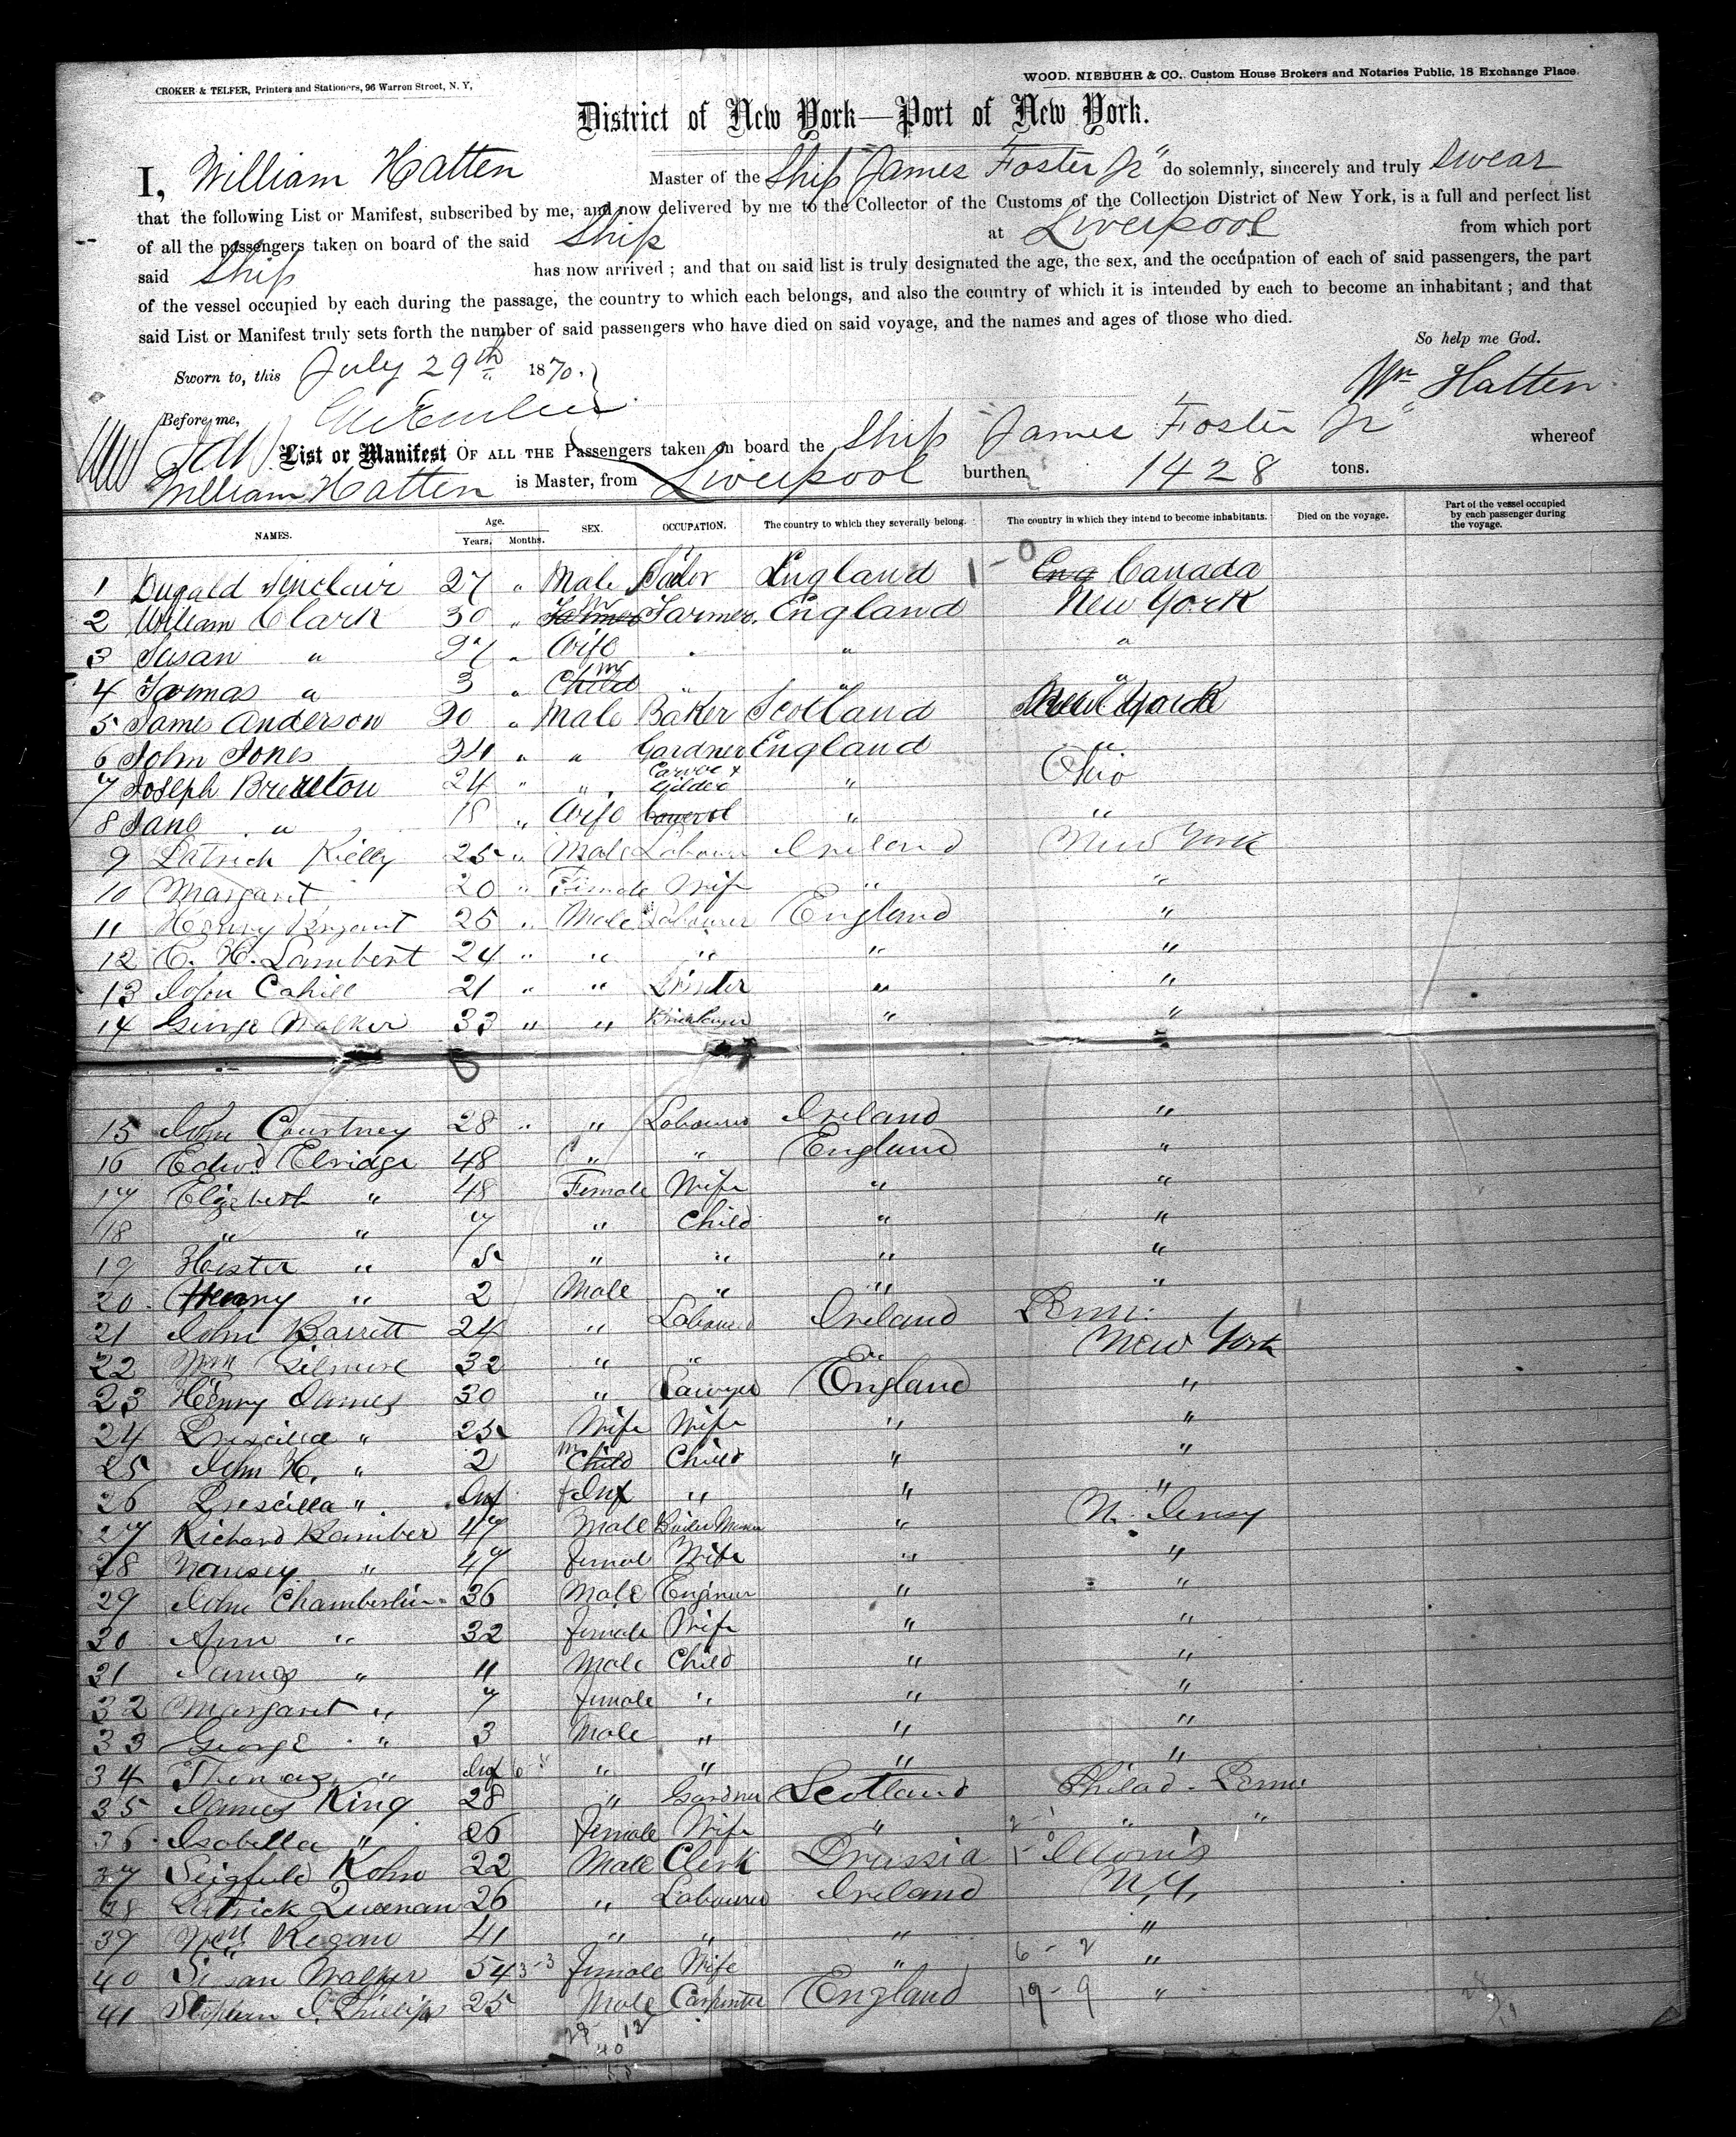 CROKER & TELFER, Printers and Stationers, 96 Warren Street, N. Y,
WOOD, NIEBUHR & CO., Custom House Brokers and Notaries Public, 18 Exchange Place.
District of New York—Port of New York.
I, William Hatten Master of the Ship "James Foster Jr" do solemnly, sincerely and truly swear
that the following List or Manifest, subscribed by me, and now delivered by me to the Collector of the Customs of the Collection District of New York, is a full and perfect list
of all the passengers taken on board of the said Ship at Liverpool from which port
said Ship has now arrived ; and that on said list is truly designated the age, the sex, and the occupation of each of said passengers, the part
of the vessel occupied by each during the passage, the country to which each belongs, and also the country of which it is intended by each to become an inhabitant ; and that
said List or Manifest truly sets forth the number of said passengers who have died on said voyage, and the names and ages of those who died.
So help me God.
Sworn to, this July 29th 1870.
Wm Hatten
Before me,
List or Manifest OF ALL THE Passengers taken on board the Ship James Foster Jr" whereof
William Hatten is Master, from Liverpool burthen, 1428 tons.
NAMES. Age. Years. Months. SEX. OCCUPATION. The country to which they severally belong. The country in which they intend to become inhabitants. Died on the voyage. Part of the vessel occupied by each passenger during the voyage.
1 Dugald Sinclair 27 " Male England 1-0 Eng Canada
2 William Clark 30 " Farmer M Farmer. England New York
3 Susan " 27 " Wife " "
4 " 3 " Child M " " "
5 James Anderson 30 " Male Baker Scotland New York
6 John Jones 34 " " Gardner England "
7 Joseph 24 " " Carver & Gilder " Ohio
8 Jane " 18 " Wife " "
9 Patrick Kielly 25 " Male Labourer Ireland New York
10 Margaret 20 " Female Wife " "
11 Henry Bryant 25 " Male Labourer England "
12 C. H. Lambert 24 " " " " "
13 John Cahill 21 " " Printer " "
14 George Walker 33 " " Bricklayer " "
15 John Courtney 28 " " Labourer Ireland "
16 Edwd Elridge 48 " " England "
17 Elizabeth " 48 Female Wife " "
18 " " 7 " Child " "
19 Hester " 5 " " " "
20 Henry " 2 Male " " "
21 John Barrett 24 " Labourer Ireland Penn.
22 Wm Gilmore 32 " " " New York
23 Henry James 30 " Sawyer England "
24 Priscilla " 25 Wife Wife " "
25 John H. " 2 M Child Child " "
26 Priscilla " Inf f Inf " " "
27 Richard Kamber 47 Male Boiler Maker " N. Jersy
28 Nansey " 47 female Wife " "
29 John Chamberlin 36 Male Engineer " "
30 Ann " 32 female Wife " "
31 James " 11 Male Child " "
32 Margaret " 7 female " " "
33 George " 3 Male " " "
34 Thomas " Inf 6 " " " "
35 James King 28 " Gardner Scotland Philad. Penn
36 Isobella " 26 female Wife " " "
37 Seigfield Kohn 22 Male Clerk Prussia Illionis
38 Patrick Queenan 26 " Labourer Ireland N.Y.
39 Wm Regan 41 " " " "
40 Susan Walker 54 3-3 female Wife " 6-2 "
41 Stephen J. Phillips 25 Male Carpenter England 19-9 "